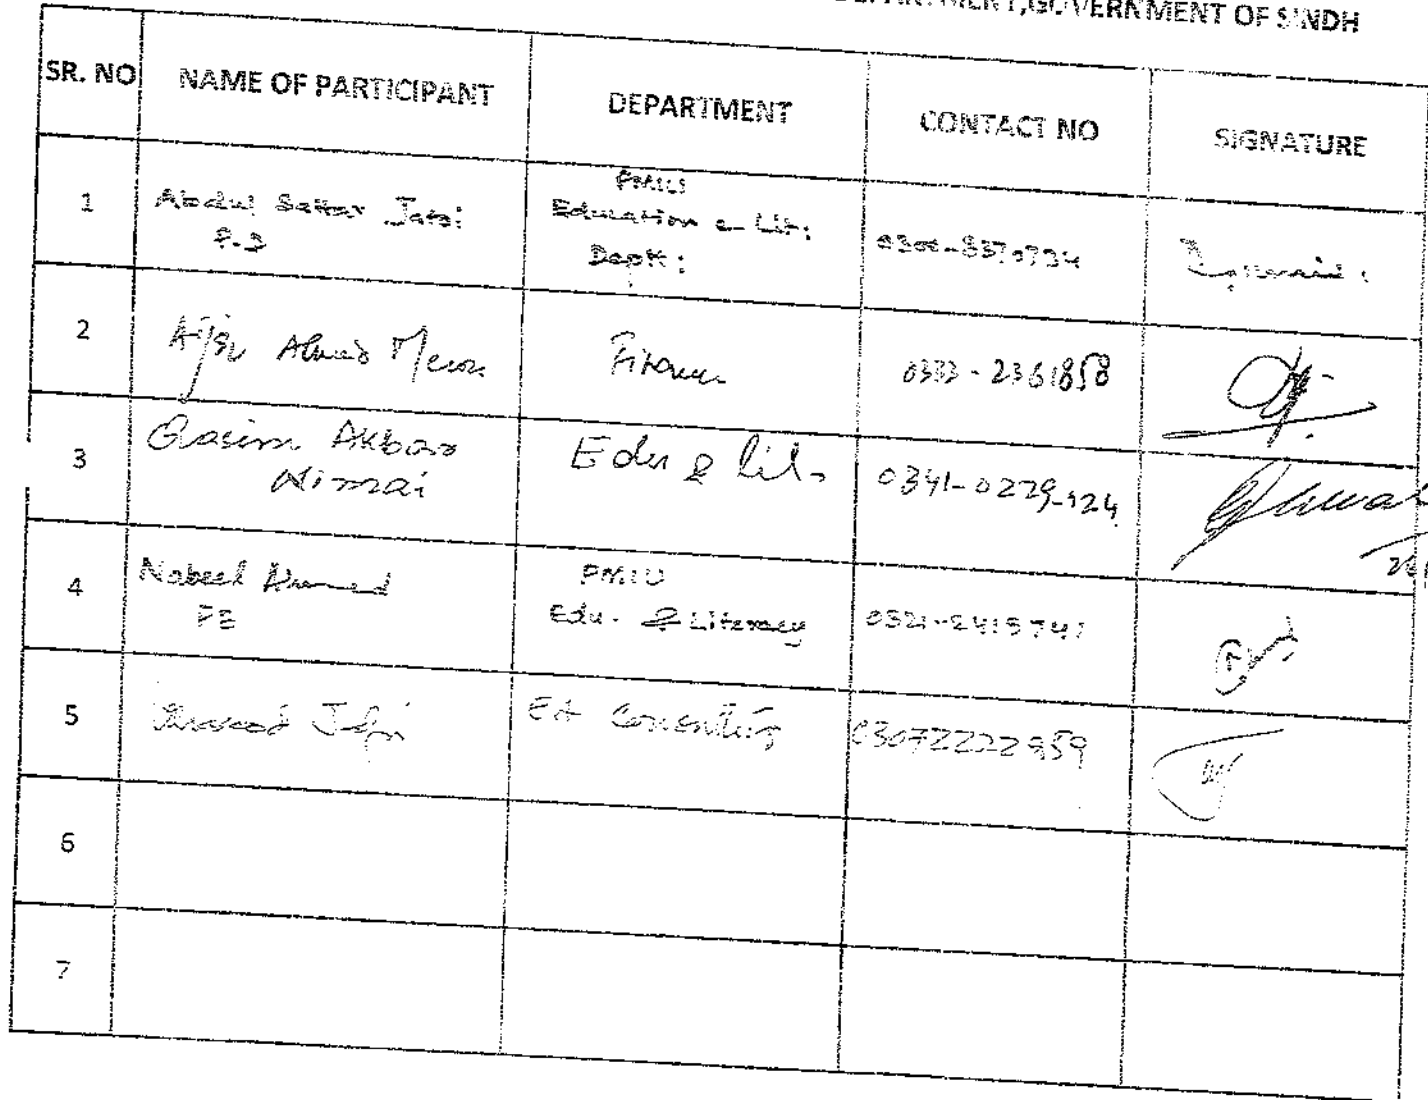 DEPARTMENT,GOVERNMENT OF SINDH
SR. NO NAME OF PARTICIPANT DEPARTMENT CONTACT NO SIGNATURE
PMIU
1 Abdul Sattar Jatoi Education & Lit: 0300-8370734
Deptt:
2 Ahmed Memon Finance 0333-2361858
3 Qasim Akbar Edu & Lit. 0341-0229124
Nimai
4 Nabeel Ahmed PMIU
Edu. & Literacy 0321-2415741
5 Jafri EA Consulting 03072222959
6
7